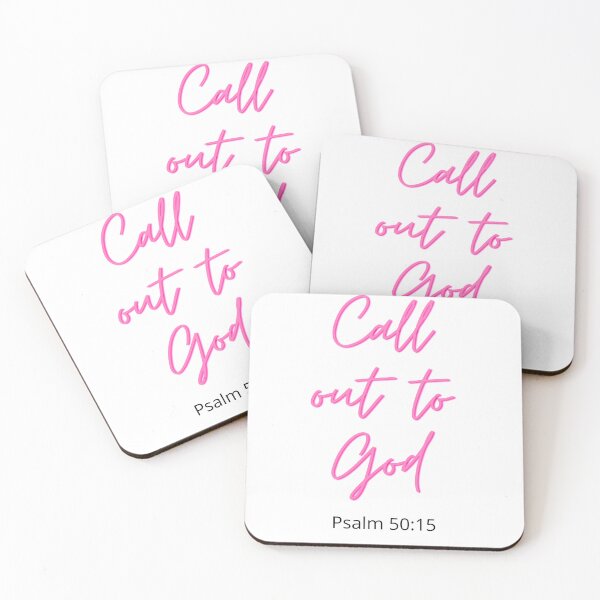 Call
out to
Call
out to
God
Call
out to
God
Psalm
Call
out to
God
Psalm 50:15